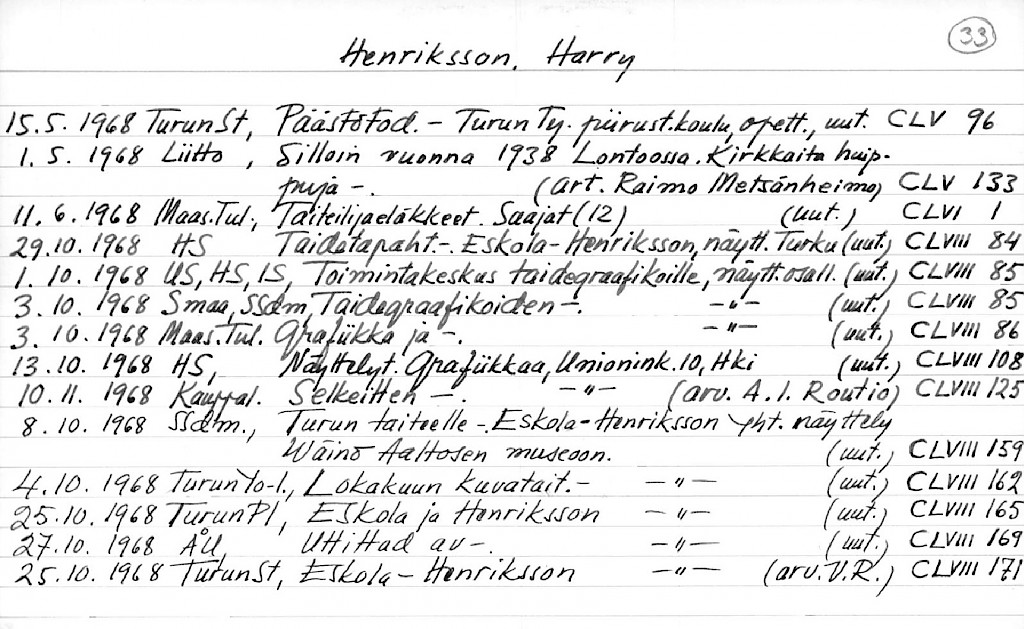 33
Henriksson, Harry
15.5. 1968 TurunSt, Päästötod. – Turun Ty. piirust.koulu, opett., uut. CLV 96
1. 5. 1968 Liitto , Silloin vuonna 1938 Lontoossa. Kirkkaita huip-
puja –. (art. Raimo Metsänheimo) CLV 133
11. 6. 1968 Maas.Tul., Taiteilijaeläkkeet. Saajat (12) (uut.) CLVI 1
29.10. 1968 HS Taidetapaht.–. Eskola–Henriksson, näytt. Turku (uut.) CLVIII 84
1. 10. 1968 US, HS, IS, Toimintakeskus taidegraafikoille, näytt.osall. (uut.) CLVIII 85
3. 10. 1968 Smaa, SSdm, Taidegraafikoiden –. –"– (uut.) CLVIII 85
3. 10. 1968 Maas.Tul. Grafiikka ja –. –"– (uut.) CLVIII 86
13.10. 1968 HS, Näyttelyt. Grafiikkaa, Unionink. 10, Hki (uut.) CLVIII 108
10. 11. 1968 Kauppal. Selkeitten –. –"– (arv. A. I. Routio) CLVIII 125
8. 10. 1968 SSdm., Turun taiteelle –. Eskola–Henriksson yht. näyttely
Wäinö Aaltosen museoon. (uut.) CLVIII 159
4.10. 1968 TurunYo-l., Lokakuun kuvatait.– –"– (uut.) CLVIII 162
25.10. 1968 TurunPl, Eskola ja Henriksson –"– (uut.) CLVIII 165
27.10. 1968 ÅU, Uttittad av –. –"– (uut.) CLVIII 169
25.10. 1968 TurunSt, Eskola – Henriksson –"– (arv. V.R.) CLVIII 171